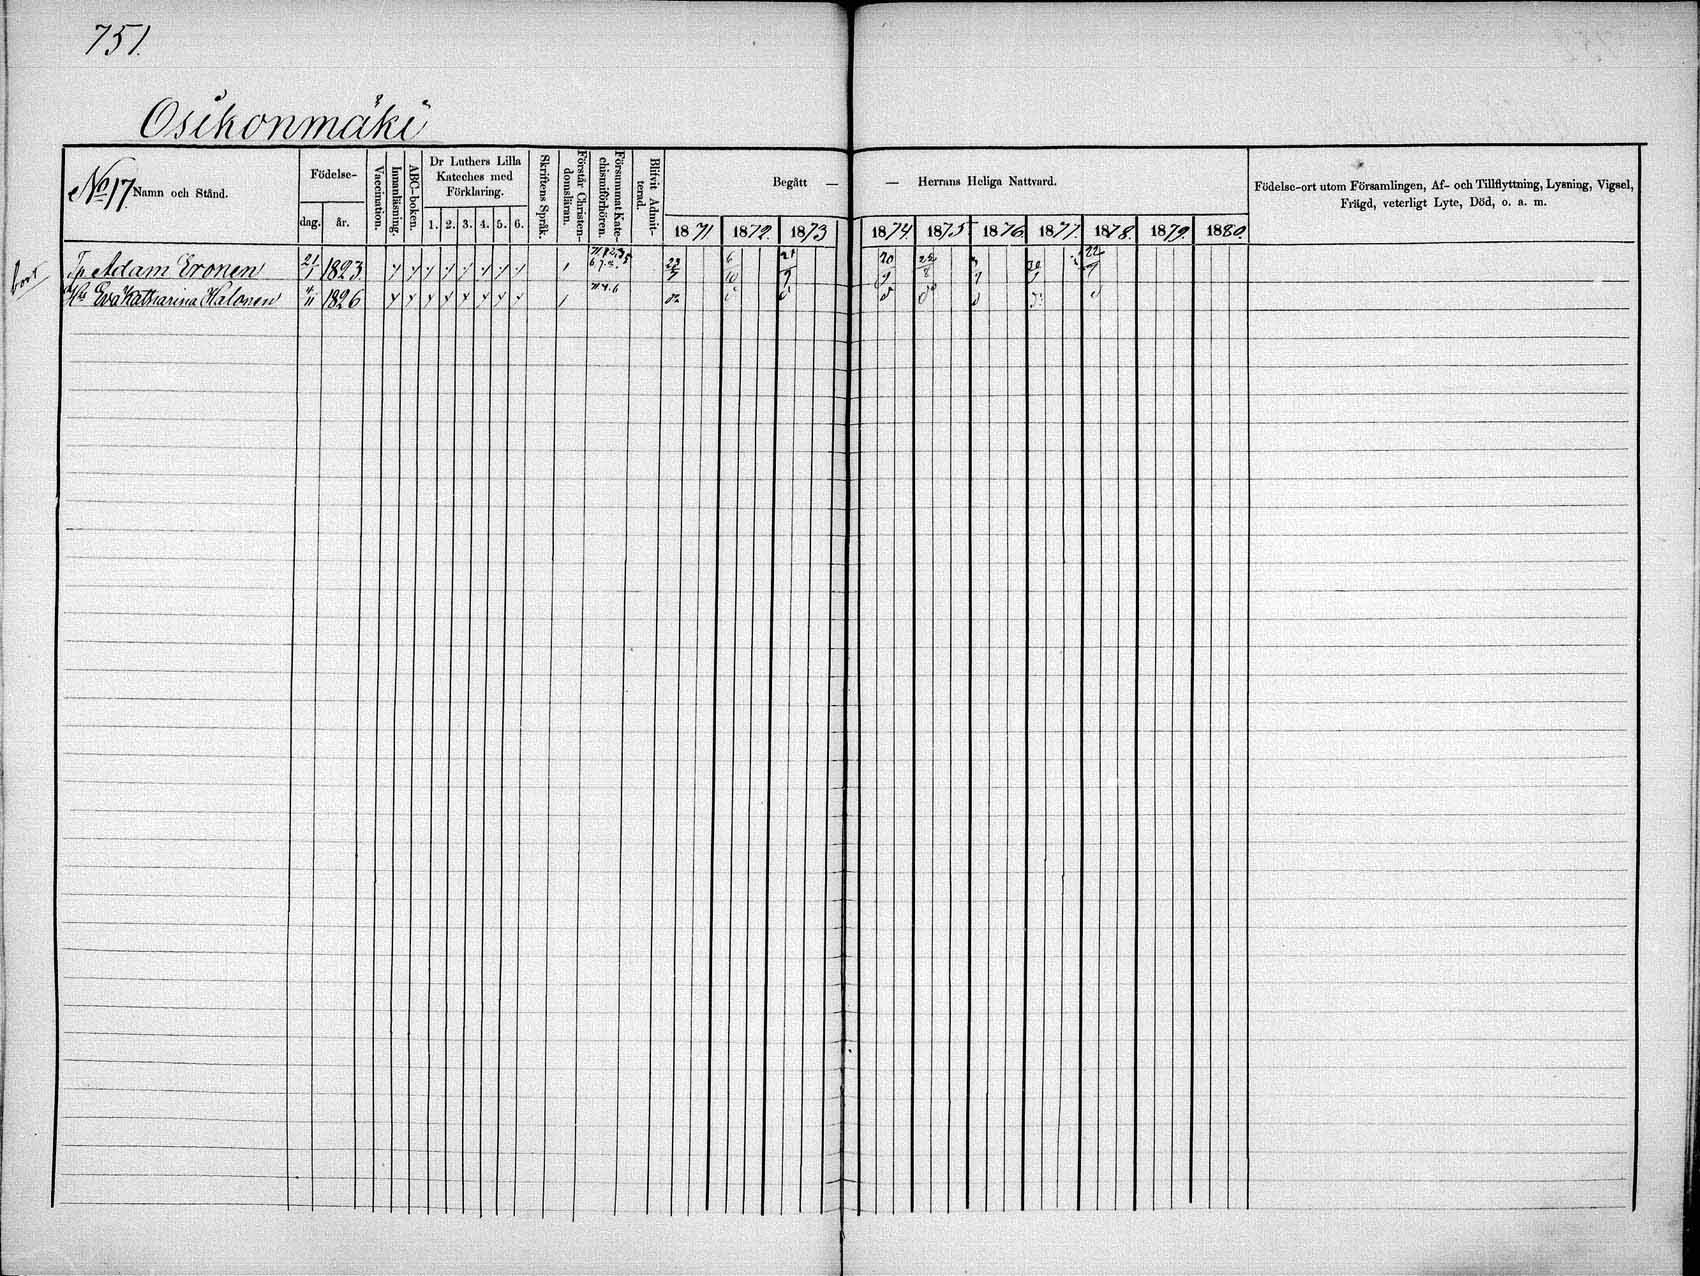 751.
Osikonmäki
No 17 Namn och Stånd.
Födelse-
dag. år.
Vaccination.
Innanläsning.
ABC-boken.
Dr Luthers Lilla
Kateches med
Förklaring.
1. 2. 3. 4. 5. 6.
Skriftens Språk.
Förstår Christen-
domsläran.
Försummat Kate-
chismiförhören.
Blifvit Admit-
terad.
Begått —
— Herrans Heliga Nattvard.
1871 1872. 1873 1874. 1875 1876 1877. 1878. 1879. 1880.
Födelse-ort utom Församlingen, Af- och Tillflyttning, Lysning, Vigsel,
Frägd, veterligt Lyte, Död, o. a. m.
bort
Adam Eronen 21/1 1823
Eva Katharina Halonen 4/11 1826